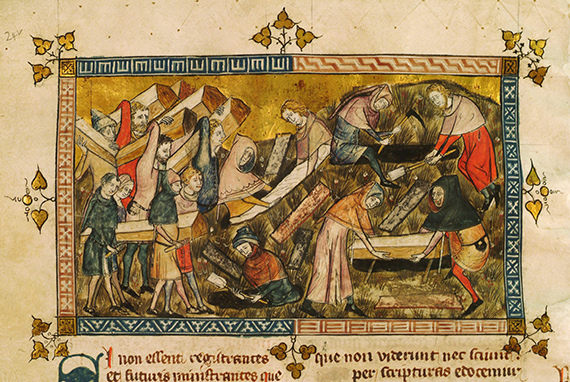 SI non essent registrantes
et futuris ministrantes que
que non viderunt nec sciunt
per scripturas edocemur